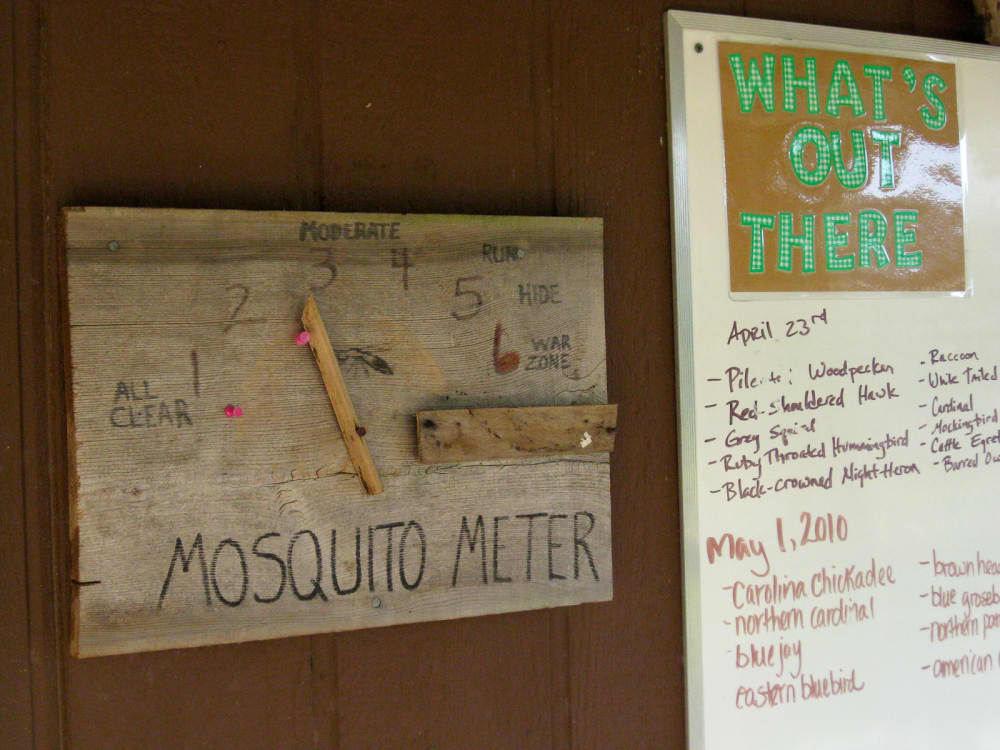 MODERATE
1
2
3
4
5
6
RUN
HIDE
WAR
ZONE
ALL
CLEAR
MOSQUITO METER
WHAT'S
OUT
THERE
April 23rd
- Woodpecker
- Red-shouldered Hawk
- Grey
- Ruby Throated Hummingbird
- Black-crowned Night-Heron
- Raccoon
- White Tailed
- Cardinal
- Mockingbird
- Cattle Egret
- Barred
May 1, 2010
- Carolina chickadee
- northern cardinal
- blue jay
eastern bluebird
- brown
- blue
- northern
- american